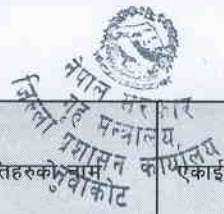 नेपाल सरकार
गृह मन्त्रालय
जिल्ला प्रशासन कार्यालय
नुवाकोट
तिहरुको नाम
एकाई